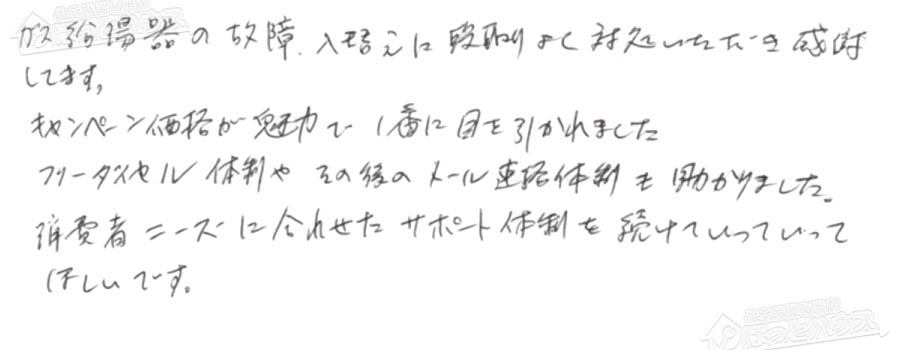 ガス給湯器の故障、入替えに段取りよく対処いただき感謝
してます。
キャンペーン価格が魅力で1番に目を引かれました
フリーダイヤル体制やその後のメール連絡体制も助かりました。
消費者ニーズに合わせたサポート体制を続けていっていって
ほしいです。
給湯設備専門店
ほっとハウス